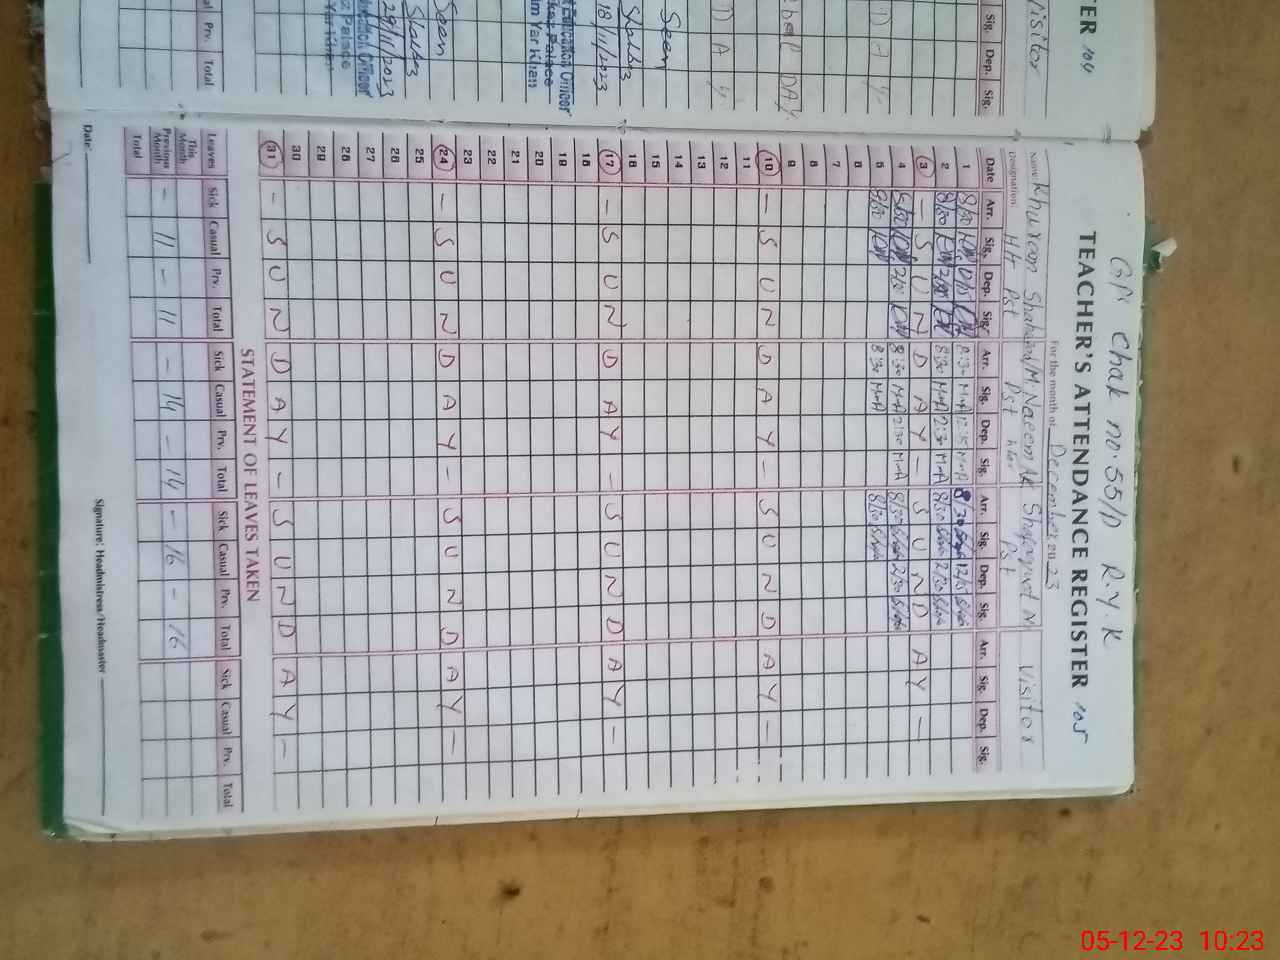 GPS Chak no. 55/P R.Y.K
TEACHER'S ATTENDANCE REGISTER 105
For the month of December 2023
Name: Khurram Shahzad M. Naeem Shafaqat visitor
Designation: Pst Pst Pst
Date Arr. Sig. Dep. Sig. Arr. Sig. Dep. Sig. Arr. Sig. Dep. Sig. Arr. Sig. Dep. Sig.
1 8/30 12/15 8:30 M-A 12:15 M-A 8/30 12/15
2 8/30 2/30 8:30 M-A 2:30 M-A 8/30 2/30
3 — S U N D A Y — S U N D A Y —
4 8/30 2/30 8:30 M-A 2:30 M-A 8/30 2/30
5 8/30 8:30 M-A 8/30
6
7
8
9
10 — S U N D A Y — S U N D A Y —
11
12
13
14
15
16
17 — S U N D A Y — S U N D A Y —
18
19
20
21
22
23
24 — S U N D A Y — S U N D A Y —
25
26
27
28
29
30
31 — S U N D A Y — S U N D A Y —
STATEMENT OF LEAVES TAKEN
Leaves Sick Casual Prv. Total Sick Casual Prv. Total Sick Casual Prv. Total Sick Casual Prv. Total
This Month
Previous Month — 11 — 11 — 14 — 14 — 16 — 16
Total
Date: Signature: Headmistress/Headmaster
TER 104
visitor
Sig. Dep. Sig.
D A Y
DAY
D A Y
Seen
18/11/2023
Education Officer
Palace
Yar Khan
Seen
29/11/2023
Officer
Palace
Yar Khan
Prv. Total
05-12-23 10:23